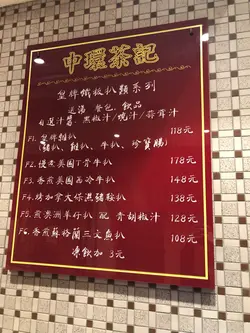 中環茶記
皇牌鐵板扒類系列
送湯 餐包 飲品
自選汁醬 黑椒汁/燒汁/蒜茸汁
F1. 皇牌雜扒 118元
(豬扒、雞扒、牛扒、珍寶腸)
F2. 慢煮美国丁骨牛扒 178元
F3. 香煎美国西冷牛扒 148元
F4. 烤加拿大保濕豬鞍扒 138元
F5. 煎澳洲羊仔扒 配 青胡椒汁 128元
F6. 香煎蘇格蘭三文魚扒 108元
凍飲加 3元